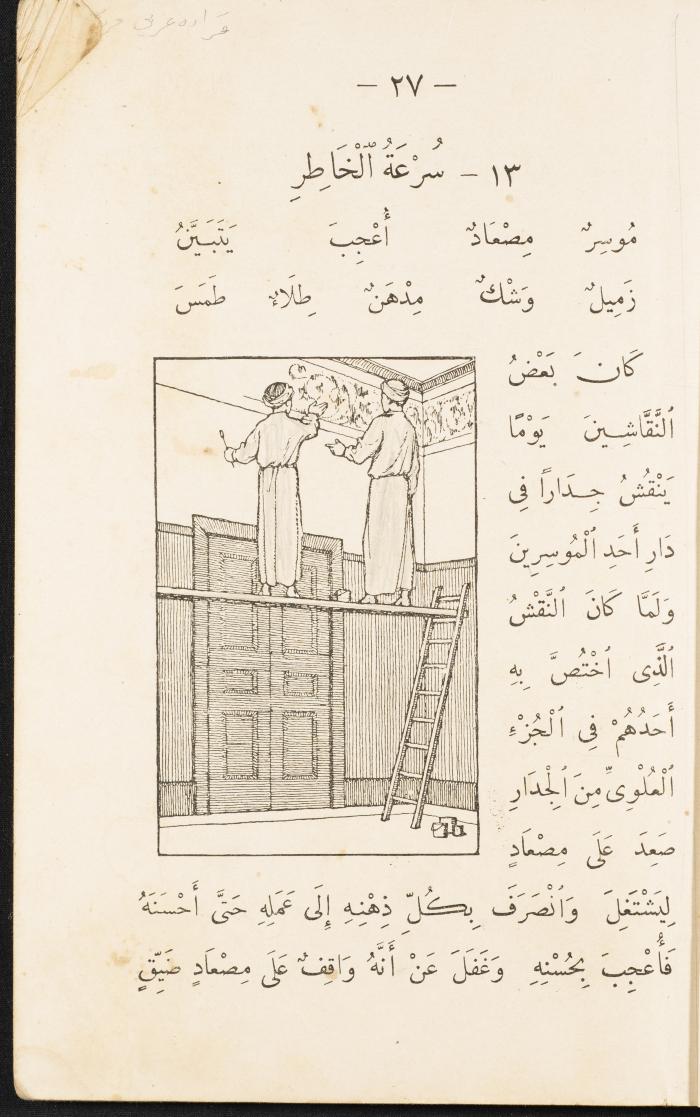 قراءة عربي
— ٢٧ —
١٣ — سُرْعَةُ ٱلْخَاطِرِ
مُوسِرٌ مِصْعَادٌ أُعْجِبَ يَتَبَيَّنُ
زَمِيلٌ وَشْكٌ مِدْهَنٌ طِلَاءٌ طَمَسَ
كَانَ بَعْضُ
ٱلنَّقَّاشِينَ يَوْمًا
يَنْقُشُ جِدَارًا فِى
دَارِ أَحَدِ ٱلْمُوسِرِينَ
وَلَمَّا كَانَ ٱلنَّقْشُ
ٱلَّذِى ٱخْتُصَّ بِهِ
أَحَدُهُمْ فِى ٱلْجُزْءِ
ٱلْعُلْوِىِّ مِنَ ٱلْجِدَارِ
صَعِدَ عَلَى مِصْعَادٍ
لِيَشْتَغِلَ وَٱنْصَرَفَ بِكُلِّ ذِهْنِهِ إِلَى عَمَلِهِ حَتَّى أَحْسَنَهُ
فَأُعْجِبَ بِحُسْنِهِ وَغَفَلَ عَنْ أَنَّهُ وَاقِفٌ عَلَى مِصْعَادٍ ضَيِّقٍ